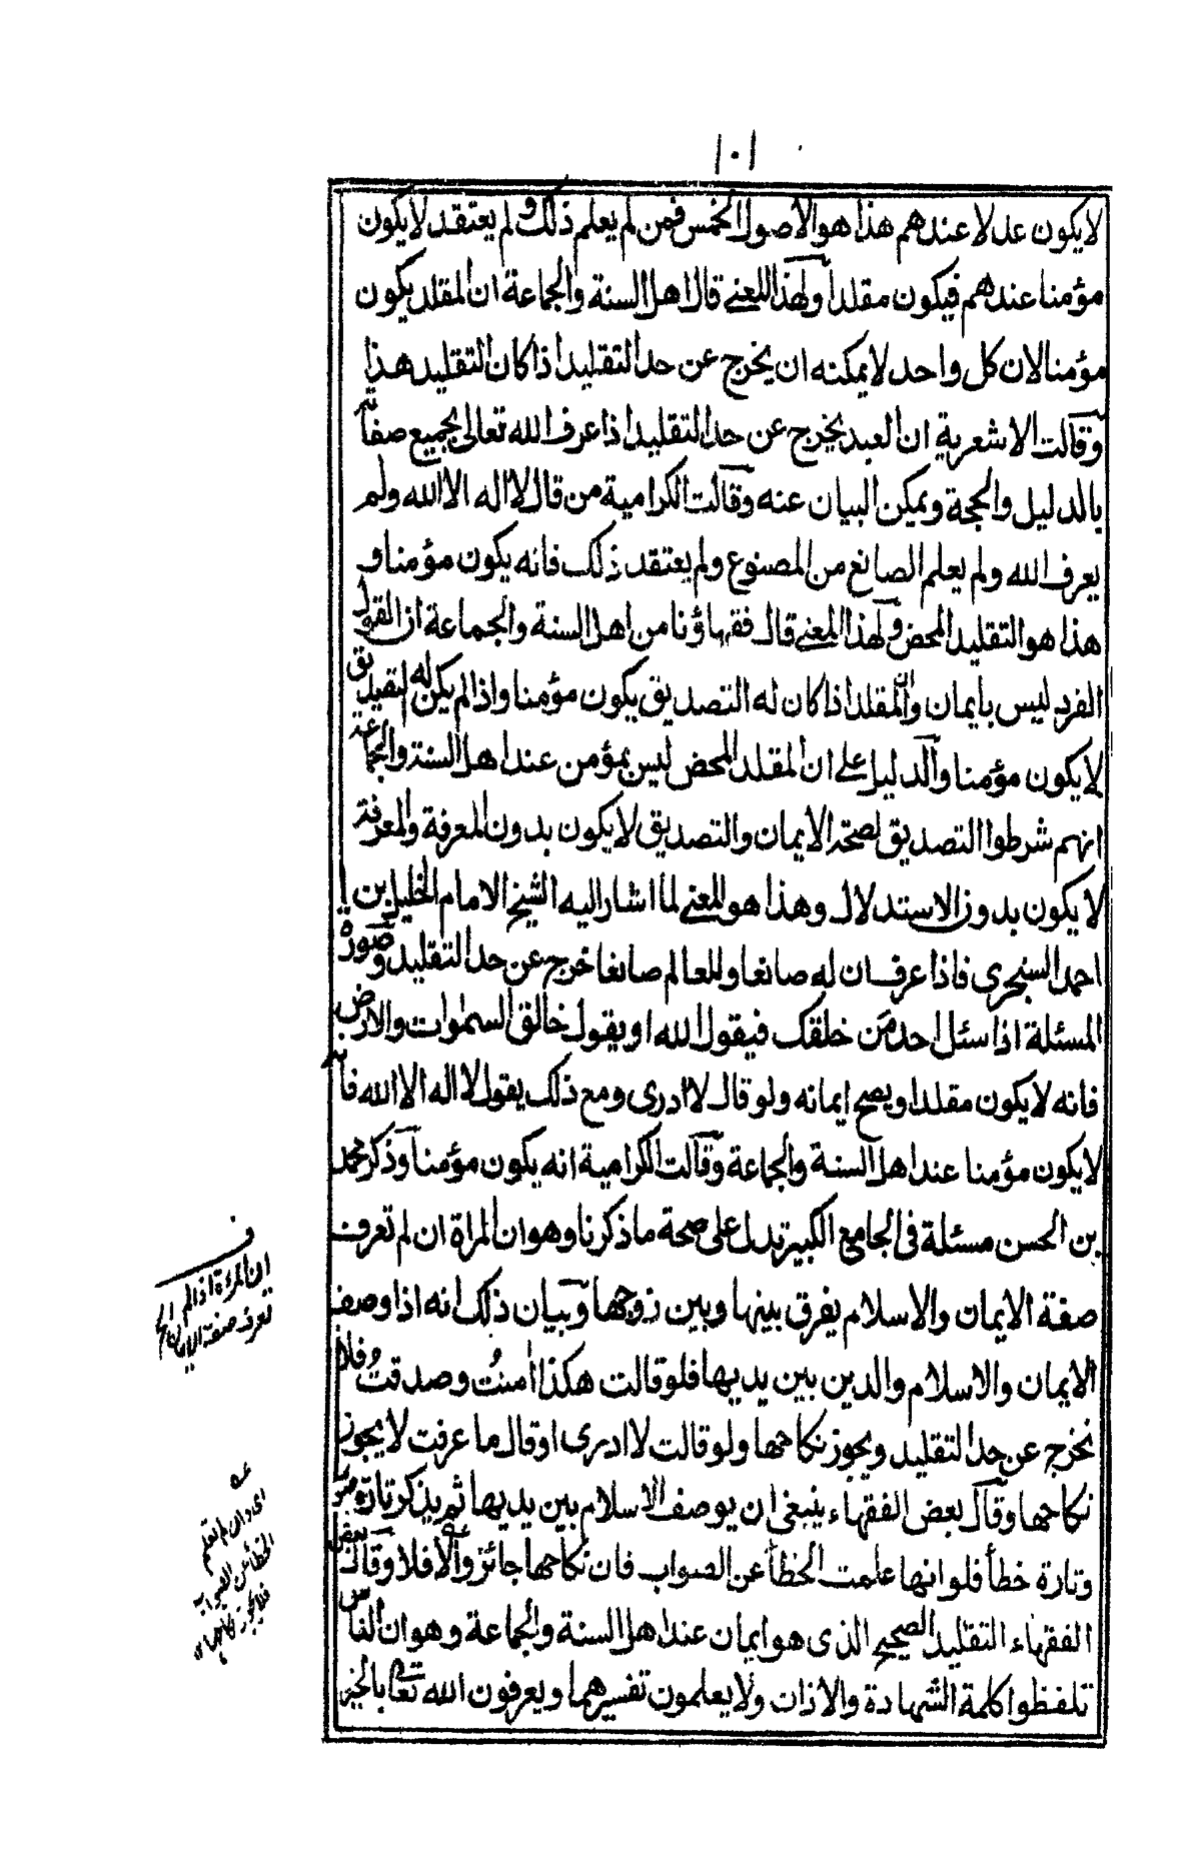 ١٠١
لا يكون عدلا عندهم هذا هو الاصول الخمس فمن لم يعلم ذلك و لم يعتقد لا يكون
مؤمنا عندهم فيكون مقلدا ولهذا المعنى قال اهل السنة والجماعة ان المقلد يكون
مؤمنا لان كل واحد لا يمكنه ان يخرج عن حد التقليد اذا كان التقليد هذا
وقالت الاشعرية ان العبد يخرج عن حد التقليد اذا عرف الله تعالى بجميع صفاته
بالدليل والحجة ويمكن البيان عنه وقالت الكرامية من قال لا اله الا الله ولم
يعرف الله ولم يعلم الصانع من المصنوع ولم يعتقد ذلك فانه يكون مؤمنا و
هذا هو التقليد المحض ولهذا المعنى قال فقهاؤنا من اهل السنة والجماعة ان القول
الفرد ليس بايمان وان المقلد اذا كان له التصديق يكون مؤمنا واذا لم يكن له التصديق
لا يكون مؤمنا والدليل على ان المقلد المحض ليس بمؤمن عند اهل السنة والجماعة
انهم شرطوا التصديق لصحة الايمان والتصديق لا يكون بدون المعرفة والمعرفة
لا يكون بدون الاستدلال وهذا هو المعنى لما اشار اليه الشيخ الامام الخليل بن
احمد السنجرى فاذا عرف ان له صانعا وللعالم صانعا خرج عن حد التقليد وصورة
المسئلة اذا سئل احد من خلقك فيقول الله او يقول خالق السموات والارض
فانه لا يكون مقلدا ويصح ايمانه ولو قال لا ادرى ومع ذلك يقول لا اله الا الله فانه
لا يكون مؤمنا عند اهل السنة والجماعة وقالت الكرامية انه يكون مؤمنا وذكر محمد
بن الحسن مسئلة فى الجامع الكبير تدل على صحة ما ذكرنا وهو ان المراة ان لم تعرف
صفة الايمان والاسلام يفرق بينها وبين زوجها وبيان ذلك انه اذا وصف
الايمان والاسلام والدين بين يديها فلو قالت هكذا اٰمنتُ وصدقتُ فلا
تخرج عن حد التقليد ويجوز نكاحها ولو قالت لا ادرى او قال ما عرفت لا يجوز
نكاحها وقال بعض الفقهاء ينبغى ان يوصف الاسلام بين يديها ثم يذكر تارة
وتارة خطأ فلو انها علمت الخطأ عن الصواب فان نكاحها جائز والا فلا وقال بعض
الفقهاء التقليد الصحيح الذى هو ايمان عند اهل السنة والجماعة وهو ان الناس
تلفظوا كلمة الشهادة والاذان ولا يعلمون تفسيرهما ويعرفون الله تعالى بالخير
ف
ان المرءة اذا لم
تعرف صفة الايمان الخ
عه
اى وان لم تعلم
الخطأ عن الصواب
فلا يجوز نكاحها